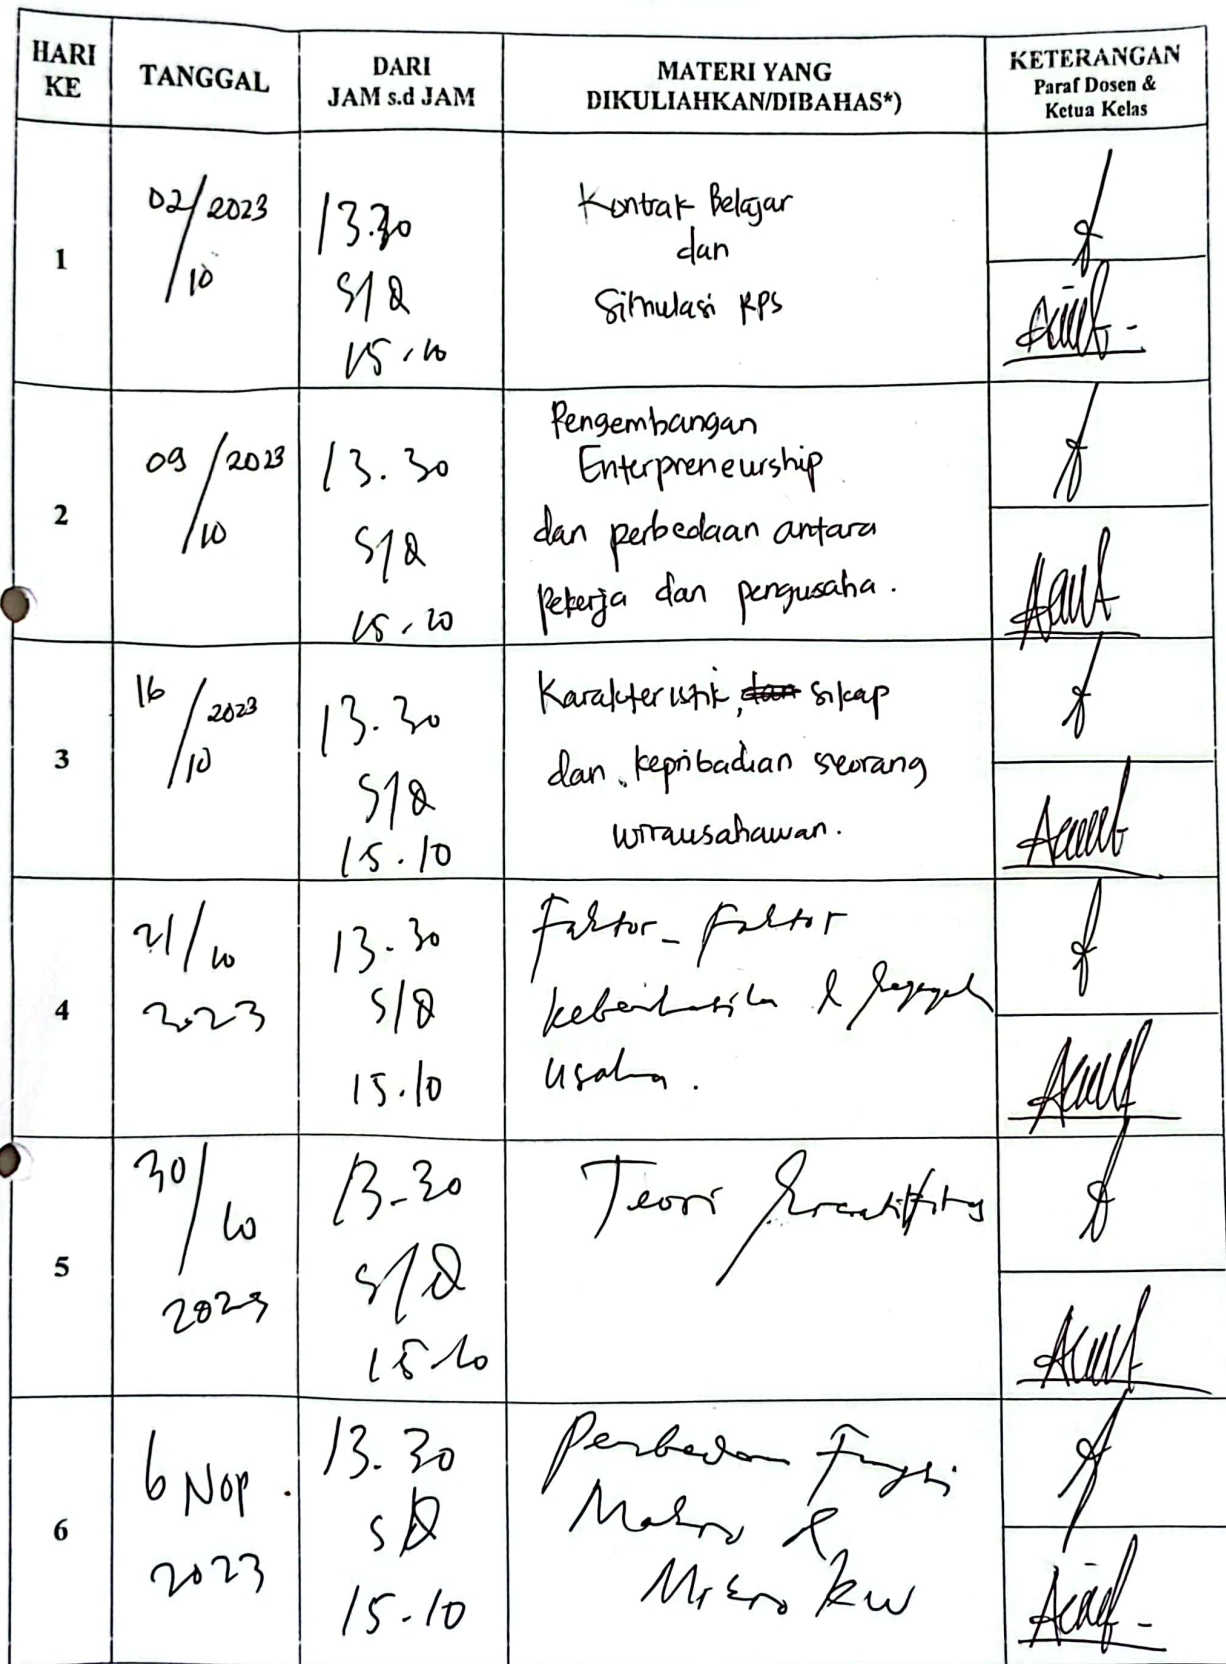 HARI
KE
TANGGAL
DARI
JAM s.d JAM
MATERI YANG
DIKULIAHKAN/DIBAHAS*)
KETERANGAN
Paraf Dosen &
Ketua Kelas
1
02/2023
/10
13.30
s/d
15.10
Kontrak Belajar
dan
Simulasi RPS
2
09/2023
/10
13.30
s/d
15.10
Pengembangan
Enterpreneurship
dan perbedaan antara
pekerja dan pengusaha.
3
16/2023
/10
13.30
s/d
15.10
Karakteristik, dan sikap
dan kepribadian seorang
wirausahawan.
4
21/10
2023
13.30
s/d
15.10
Faktor-Faktor
keberhasilan &
usaha.
5
30/10
2023
13-30
s/d
15.10
Teori
6
6 Nop.
2023
13.30
s/d
15-10
Perbedaan Fungsi
Makro &
Mikro kw